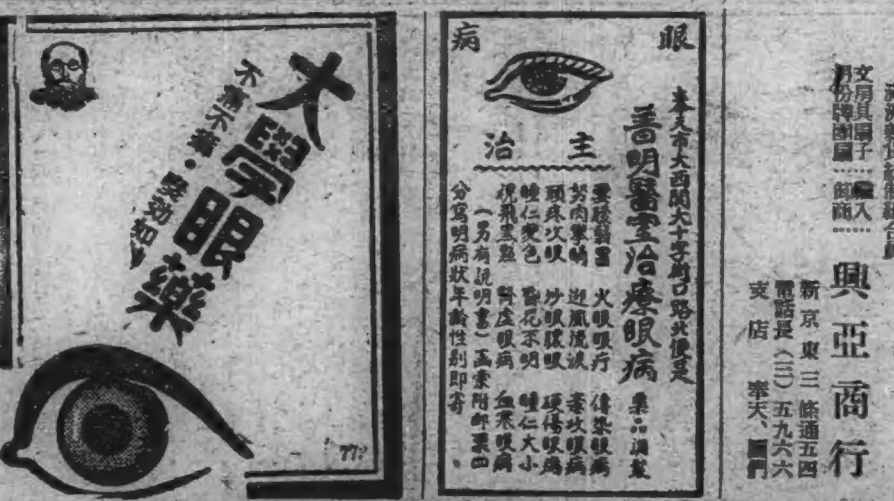 滿洲
文房具
興亞商行
新京東三條通五四
電話長(三)五九六六
支店 奉天、圖們
眼病
主治
奉天市大西關大十字街口路北便是
普明醫室治療眼病
藥品調製
雲朦翳蒙 火眼眼疔 傳染眼病
努肉攀睛 迎風流淚 毒攻眼病
頭疼攻眼 沙眼膿眼 硬傷眼瘍
瞳仁變色 昏花不明 瞳仁大小
視飛黑點 腎虛眼病 血衰眼病
(另有説明書)函索附郵票四
分寫明病狀年齡性别即寄。
大學眼藥
不痛不癢•驗効如神